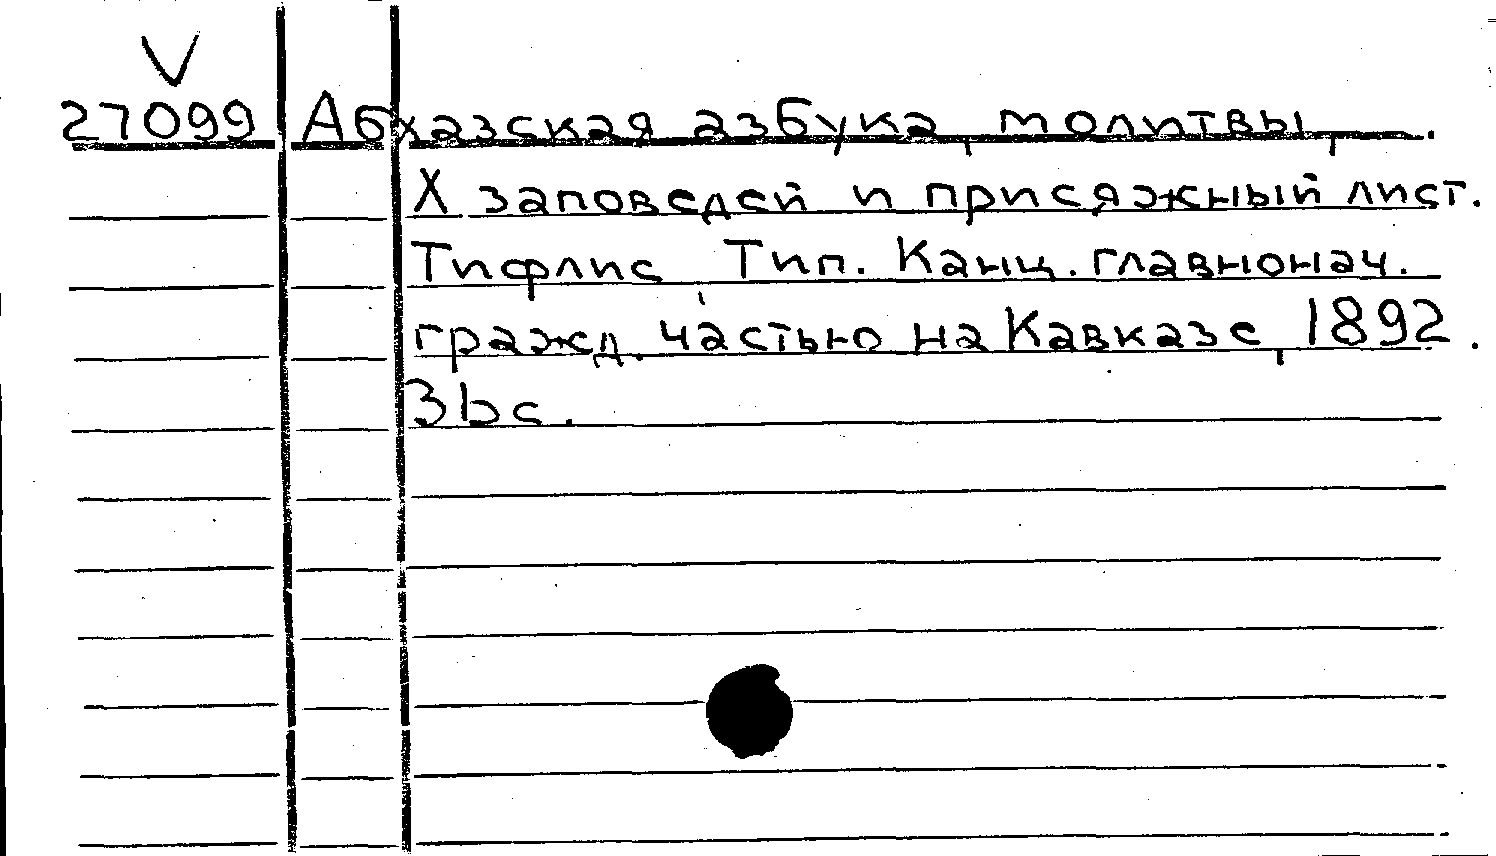 V
27099 Абхазская азбука, молитвы,
X заповедей и присяжный лист.
Тифлис, Тип. Канц. главнонач.
гражд. частью на Кавказе, 1892.
36с.